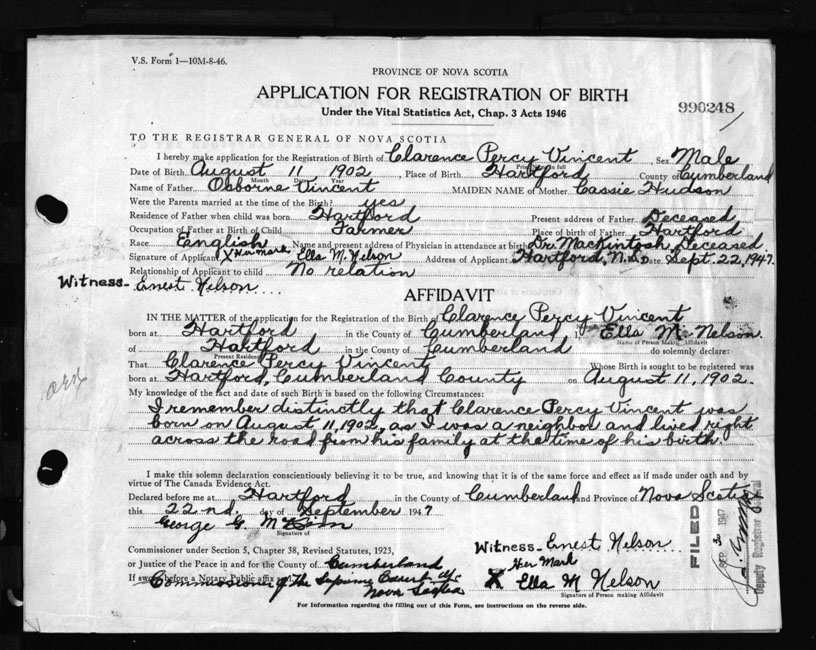 V.S. Form 1—10M-8-46.
PROVINCE OF NOVA SCOTIA
APPLICATION FOR REGISTRATION OF BIRTH
Under the Vital Statistics Act, Chap. 3 Acts 1946
990248
TO THE REGISTRAR GENERAL OF NOVA SCOTIA
I hereby make application for the Registration of Birth of Clarence Percy Vincent, Sex Male
Date of Birth August 11 1902, Place of Birth Hartford County of Cumberland
Month Date Year
Name of Father Osborne Vincent MAIDEN NAME of Mother Cassie Hudson
Were the Parents married at the time of the Birth? yes
Residence of Father when child was born Hartford Present address of Father Deceased
Occupation of Father at Birth of Child Farmer Place of birth of Father Hartford
Race English Name and present address of Physician in attendance at birth Dr. MacKintosh, Deceased.
Signature of Applicant X Her mark Ella M. Nelson Address of Applicant Hartford, N.S. Date Sept. 22, 1947.
Relationship of Applicant to child No relation
Witness - Ernest Nelson
AFFIDAVIT
IN THE MATTER of the application for the Registration of the Birth of Clarence Percy Vincent
born at Hartford in the County of Cumberland, I, Ella M. Nelson.
Name of Person Making Affidavit
of Hartford in the County of Cumberland do solemnly declare:
Present Residence
That Clarence Percy Vincent Whose Birth is sought to be registered was
born at Hartford, Cumberland County on August 11, 1902.
My knowledge of the fact and date of such Birth is based on the following Circumstances:
I remember distinctly that Clarence Percy Vincent was
born on August 11, 1902, as I was a neighbor and lived right
across the road from his family at the time of his birth.
I make this solemn declaration conscientiously believing it to be true, and knowing that it is of the same force and effect as if made under oath and by
virtue of The Canada Evidence Act.
Declared before me at Hartford in the County of Cumberland and Province of Nova Scotia
this 22nd. day of September 1947
George G.
Signature of
Commissioner under Section 5, Chapter 38, Revised Statutes, 1923,
or Justice of the Peace in and for the County of Cumberland
If sworn before a Notary Public affix
Commissioner of The Supreme Court of
Nova Scotia
Witness - Ernest Nelson
Her Mark
X Ella M Nelson
Signature of Person making Affidavit
For Information regarding the filling out of this Form, see instructions on the reverse side.
FILED
1947
Deputy Registrar General